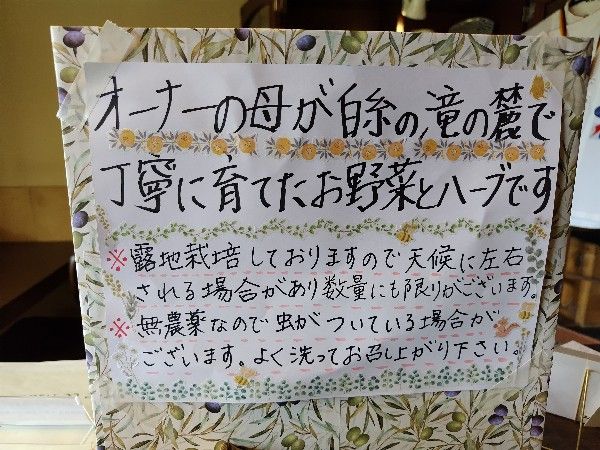 オーナーの母が白糸の滝の麓で
丁寧に育てたお野菜とハーブです
※露地栽培しておりますので天候に左右
される場合があり数量にも限りがございます。
※無農薬なので虫がついている場合が
ございます。よく洗ってお召し上がり下さい。